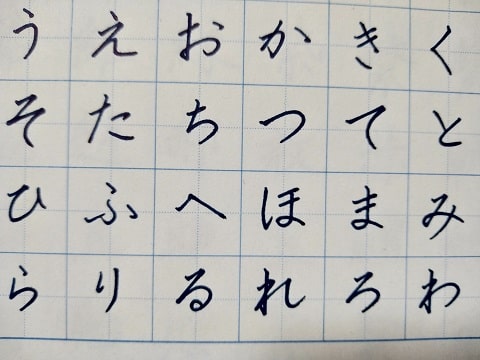 うえおかきく
そたちつてと
ひふへほまみ
らりるれろわ